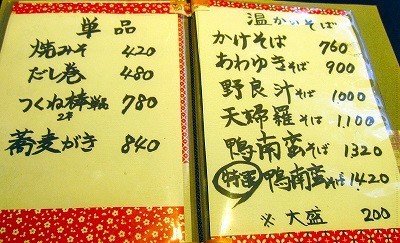 単品
焼みそ 420
だし巻 480
つくね棒 780
2本
蕎麦がき 840
温かいそば
かけそば 760
あわゆきそば 900
野良汁そば 1000
天婦羅そば 1,100
鴨南蛮そば 1320
特選 鴨南蛮そば 1420
※大盛 200